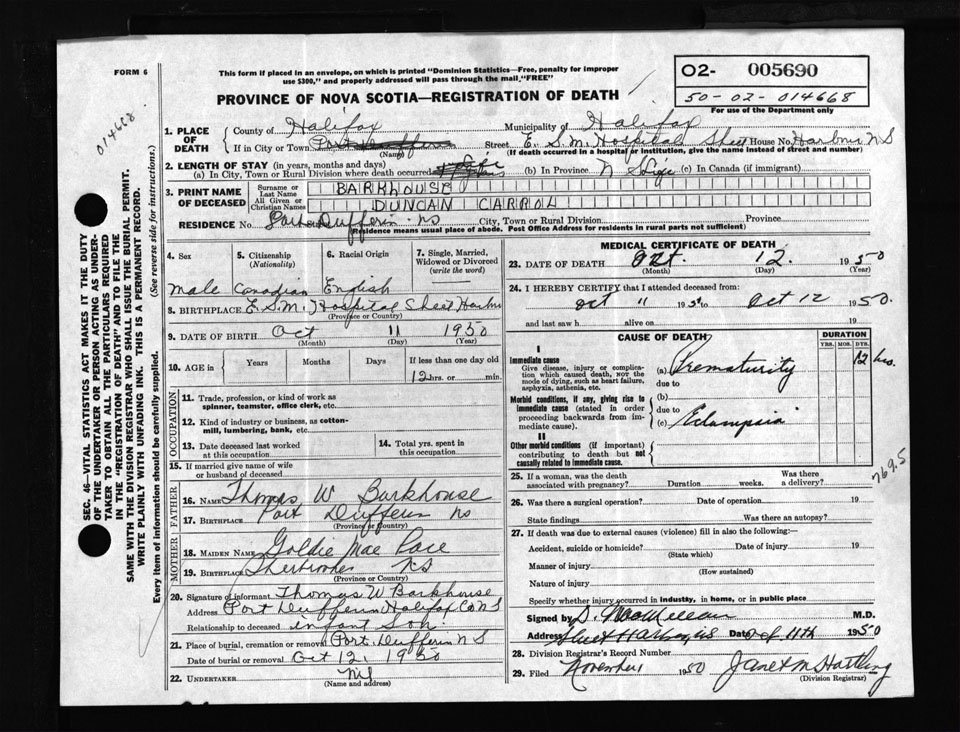 FORM 6
This form if placed in an envelope, on which is printed "Dominion Statistics—Free, penalty for improper
use $300," and properly addressed will pass through the mail "FREE"
PROVINCE OF NOVA SCOTIA—REGISTRATION OF DEATH
02- 005690
50-02-014668
For use of the Department only
014668
SEC. 46—VITAL STATISTICS ACT MAKES IT THE DUTY
OF THE UNDERTAKER OR PERSON ACTING AS UNDER-
TAKER TO OBTAIN ALL THE PARTICULARS REQUIRED
IN THE "REGISTRATION OF DEATH" AND TO FILE THE
SAME WITH THE DIVISION REGISTRAR WHO SHALL ISSUE THE BURIAL PERMIT.
WRITE PLAINLY WITH UNFADING INK. THIS IS A PERMANENT RECORD.
Every item of information should be carefully supplied. (See reverse side for instructions.)
1. PLACE OF DEATH
County of Halifax Municipality of Halifax
If in City or Town Port Dufferin Street E. S. M. Hospital Sheet House No. Harbour N S
(Name) (If death occurred in a hospital or institution, give the name instead of street and number)
2. LENGTH OF STAY (in years, months and days)
(a) In City, Town or Rural Division where death occurred (b) In Province N S Life (c) In Canada (if immigrant)
3. PRINT NAME OF DECEASED
Surname or Last Name BARKHOUSE
All Given or Christian Names DUNCAN CARROL
RESIDENCE No. Port Street Dufferin NS City, Town or Rural Division Province
(Residence means usual place of abode. Post Office Address for residents in rural parts not sufficient)
4. Sex 5. Citizenship (Nationality) 6. Racial Origin 7. Single, Married, Widowed or Divorced (write the word)
Male Canadian English
8. BIRTHPLACE E.S.M. Hospital Sheet Harbour
(Province or Country)
9. DATE OF BIRTH Oct 11 1950
(Month) (Day) (Year)
10. AGE in Years Months Days If less than one day old
12 hrs. or min.
OCCUPATION
11. Trade, profession, or kind of work as
spinner, teamster, office clerk, etc.
12. Kind of industry or business, as cotton-
mill, lumbering, bank, etc.
13. Date deceased last worked
at this occupation
14. Total yrs. spent in
this occupation
15. If married give name of wife
or husband of deceased
FATHER
16. NAME Thomas W Barkhouse
17. BIRTHPLACE Port Dufferin NS
(Province or Country)
MOTHER
18. MAIDEN NAME Goldie Mae Pace
19. BIRTHPLACE Sherbrooke NS
(Province or Country)
20. Signature of informant Thomas W Barkhouse
Address Port Dufferin Halifax Co NS
Relationship to deceased infant Son
21. Place of burial, cremation or removal Port Dufferin N S
Date of burial or removal Oct 12, 1950
22. UNDERTAKER Nil
(Name and address)
MEDICAL CERTIFICATE OF DEATH
23. DATE OF DEATH Oct. 12. 1950
(Month) (Day) (Year)
24. I HEREBY CERTIFY that I attended deceased from:
Oct 11 1950 to Oct 12 1950.
and last saw h alive on 19
CAUSE OF DEATH
DURATION
YRS. MOS. DYS.
I
Immediate cause
Give disease, injury or complica-
tion which caused death, NOT the
mode of dying, such as heart failure,
asphyxia, asthenia, etc.
(a) Prematurity 12 hrs.
due to
Morbid conditions, if any, giving rise to
immediate cause (stated in order
proceeding backwards from im-
mediate cause).
(b)
due to
(c) Eclampsia
II
Other morbid conditions (if important)
contributing to death but not
causally related to immediate cause.
769.5
25. If a woman, was the death
associated with pregnancy? Duration weeks. Was there
a delivery?
26. Was there a surgical operation? Date of operation 19
State findings Was there an autopsy?
27. If death was due to external causes (violence) fill in also the following:
Accident, suicide or homicide? Date of injury 19
(State which)
Manner of injury
(How sustained)
Nature of injury
Specify whether injury occurred in industry, in home, or in public place
Signed by M.D.
Address Sheet Harbour NS Date 1950
28. Division Registrar's Record Number
29. Filed November 1 1950 Janet M Hartling
(Division Registrar)